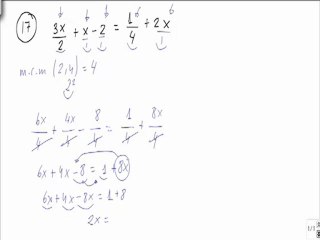 17 3x/2 + x - 2 = 1/4 + 2x
m.c.m (2,4) = 4
2²
6x/4 + 4x/4 - 8/4 = 1/4 + 8x/4
6x + 4x - 8 = 1 + 8x
6x + 4x - 8x = 1 + 8
2x =